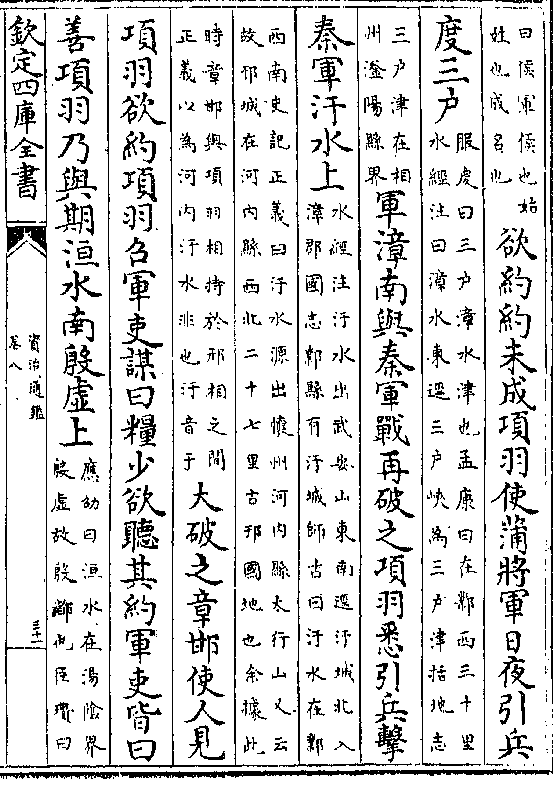 曰侯軍侯也始
姓也成名也
欲約約未成項羽使蒲將軍日夜引兵
度三户
服虔曰三户漳水津也孟康曰在鄴西三十里
水經注曰漳水東逕三户峽為三户津括地志
三户津在相
州滏陽縣界
軍漳南與秦軍戰再破之項羽悉引兵擊
秦軍汙水上
水經注汙水出武安山東南逕汙城北入
漳郡國志鄴縣有汙城師古曰汙水在鄴
西南史記正義曰汙水源出懷州河内縣太行山又云
故邘城在河内縣西北二十七里古邘國地也余據此
時章邯與項羽相持於邢相之間
正義以為河内汙水非也汙音于
大破之章邯使人見
項羽欲約項羽召軍吏謀曰糧少欲聽其約軍吏皆曰
善項羽乃與期洹水南殷虚上
應劭曰洹水在湯陰界
殷虚故殷都也臣瓚曰
欽定四庫全書
資治通鑑
卷八
三十一